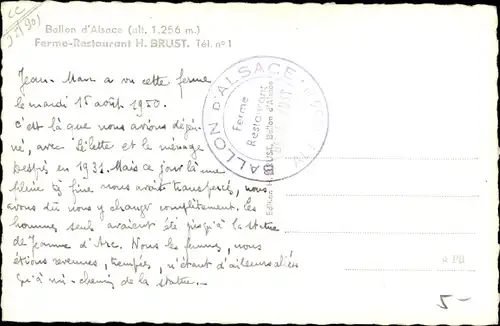 CC
(2190)
Ballon d'Alsace (alt. 1.256 m.)
Ferme-Restaurant H. BRUST. Tél. n° 1
Jean-Marc a vu cette ferme
le mardi 15 août 1950.
c'est là que nous avions déjeu-
né, avec Lilette et le ménage
en 1931. Mais ce jour là une
pluie fine nous avait transpercés, nous
avons dû nous y changer complètement. les
hommes seuls avaient été jusqu'à la statue
de Jeanne d'Arc. Nous les femmes, nous
étions revenues, trempées, n'étant d'ailleurs allées
qu'à mi-chemin de la statue.
BALLON D'ALSACE
Ferme
Restaurant
Edition H. BRUST, Ballon d'Alsace
5-